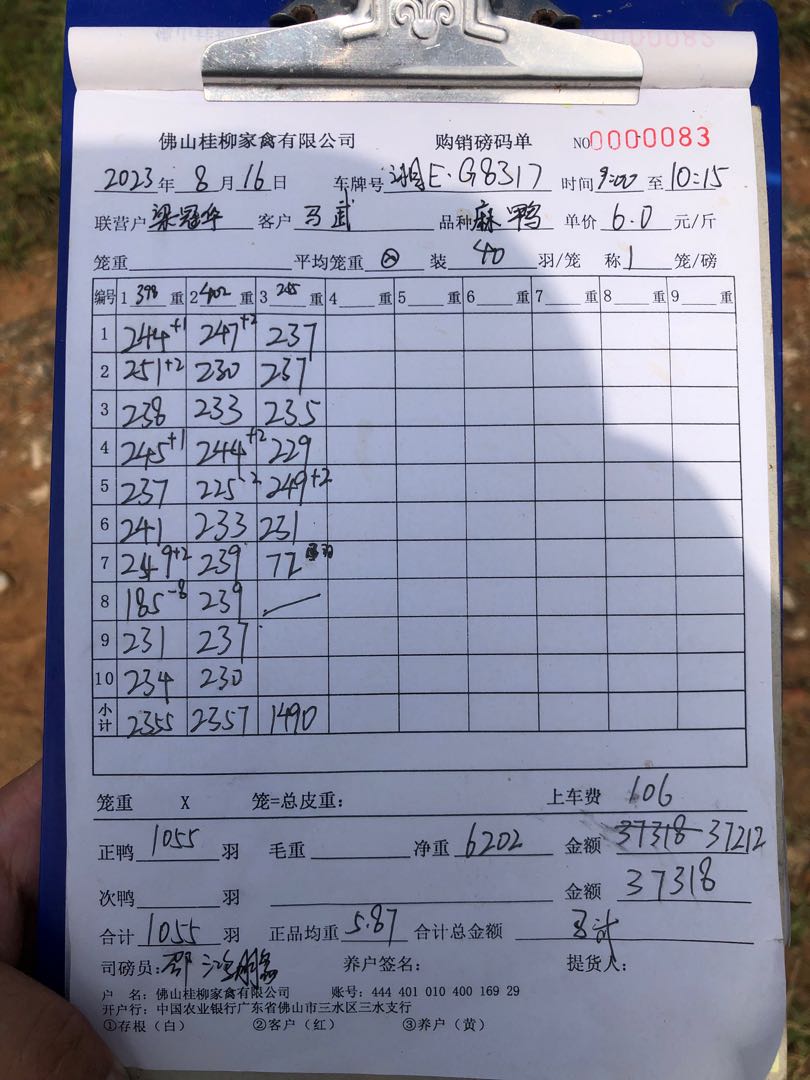 佛山桂柳家禽有限公司 购销磅码单 NO0000083
2023年 8月16日 车牌号 湘E·G8317 时间9:00至10:15
联营户 梁冠华 客户 马武 品种 麻鸭 单价 6.0 元/斤
笼重 平均笼重 ⊗ 装 40 羽/笼 称 1 笼/磅
编号 1 398 重 2 402 重 3 255 重 4 重 5 重 6 重 7 重 8 重 9 重
1 244+1 247+2 237
2 251+2 230 237
3 238 233 235
4 245+1 244+2 229
5 237 225-2 249+2
6 241 233 231
7 249+2 239 72
8 185-8 239
9 231 237
10 234 230
小计 2355 2357 1490
笼重 X 笼=总皮重: 上车费 106
正鸭 1055 羽 毛重 净重 6202 金额 37318 37212
次鸭 羽 金额 37318
合计 1055 羽 正品均重 5.87 合计总金额 马武
司磅员: 养户签名: 提货人:
户 名: 佛山桂柳家禽有限公司 账号: 444 401 010 400 169 29
开户行: 中国农业银行广东省佛山市三水区三水支行
①存根(白) ②客户(红) ③养户(黄)